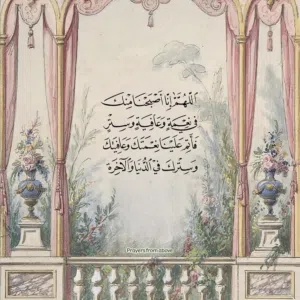 اللَّهُمَّ إِنَّا أَصْبَحْنَا مِنْكَ
فِي نِعْمَةٍ وَعَافِيَةٍ وَسِتْرٍ
فَأَتِمَّ عَلَيْنَا نِعْمَتَكَ وَعَافِيَتَكَ
وَسِتْرَكَ فِي الدُّنْيَا وَالْآخِرَة
Prayers from above